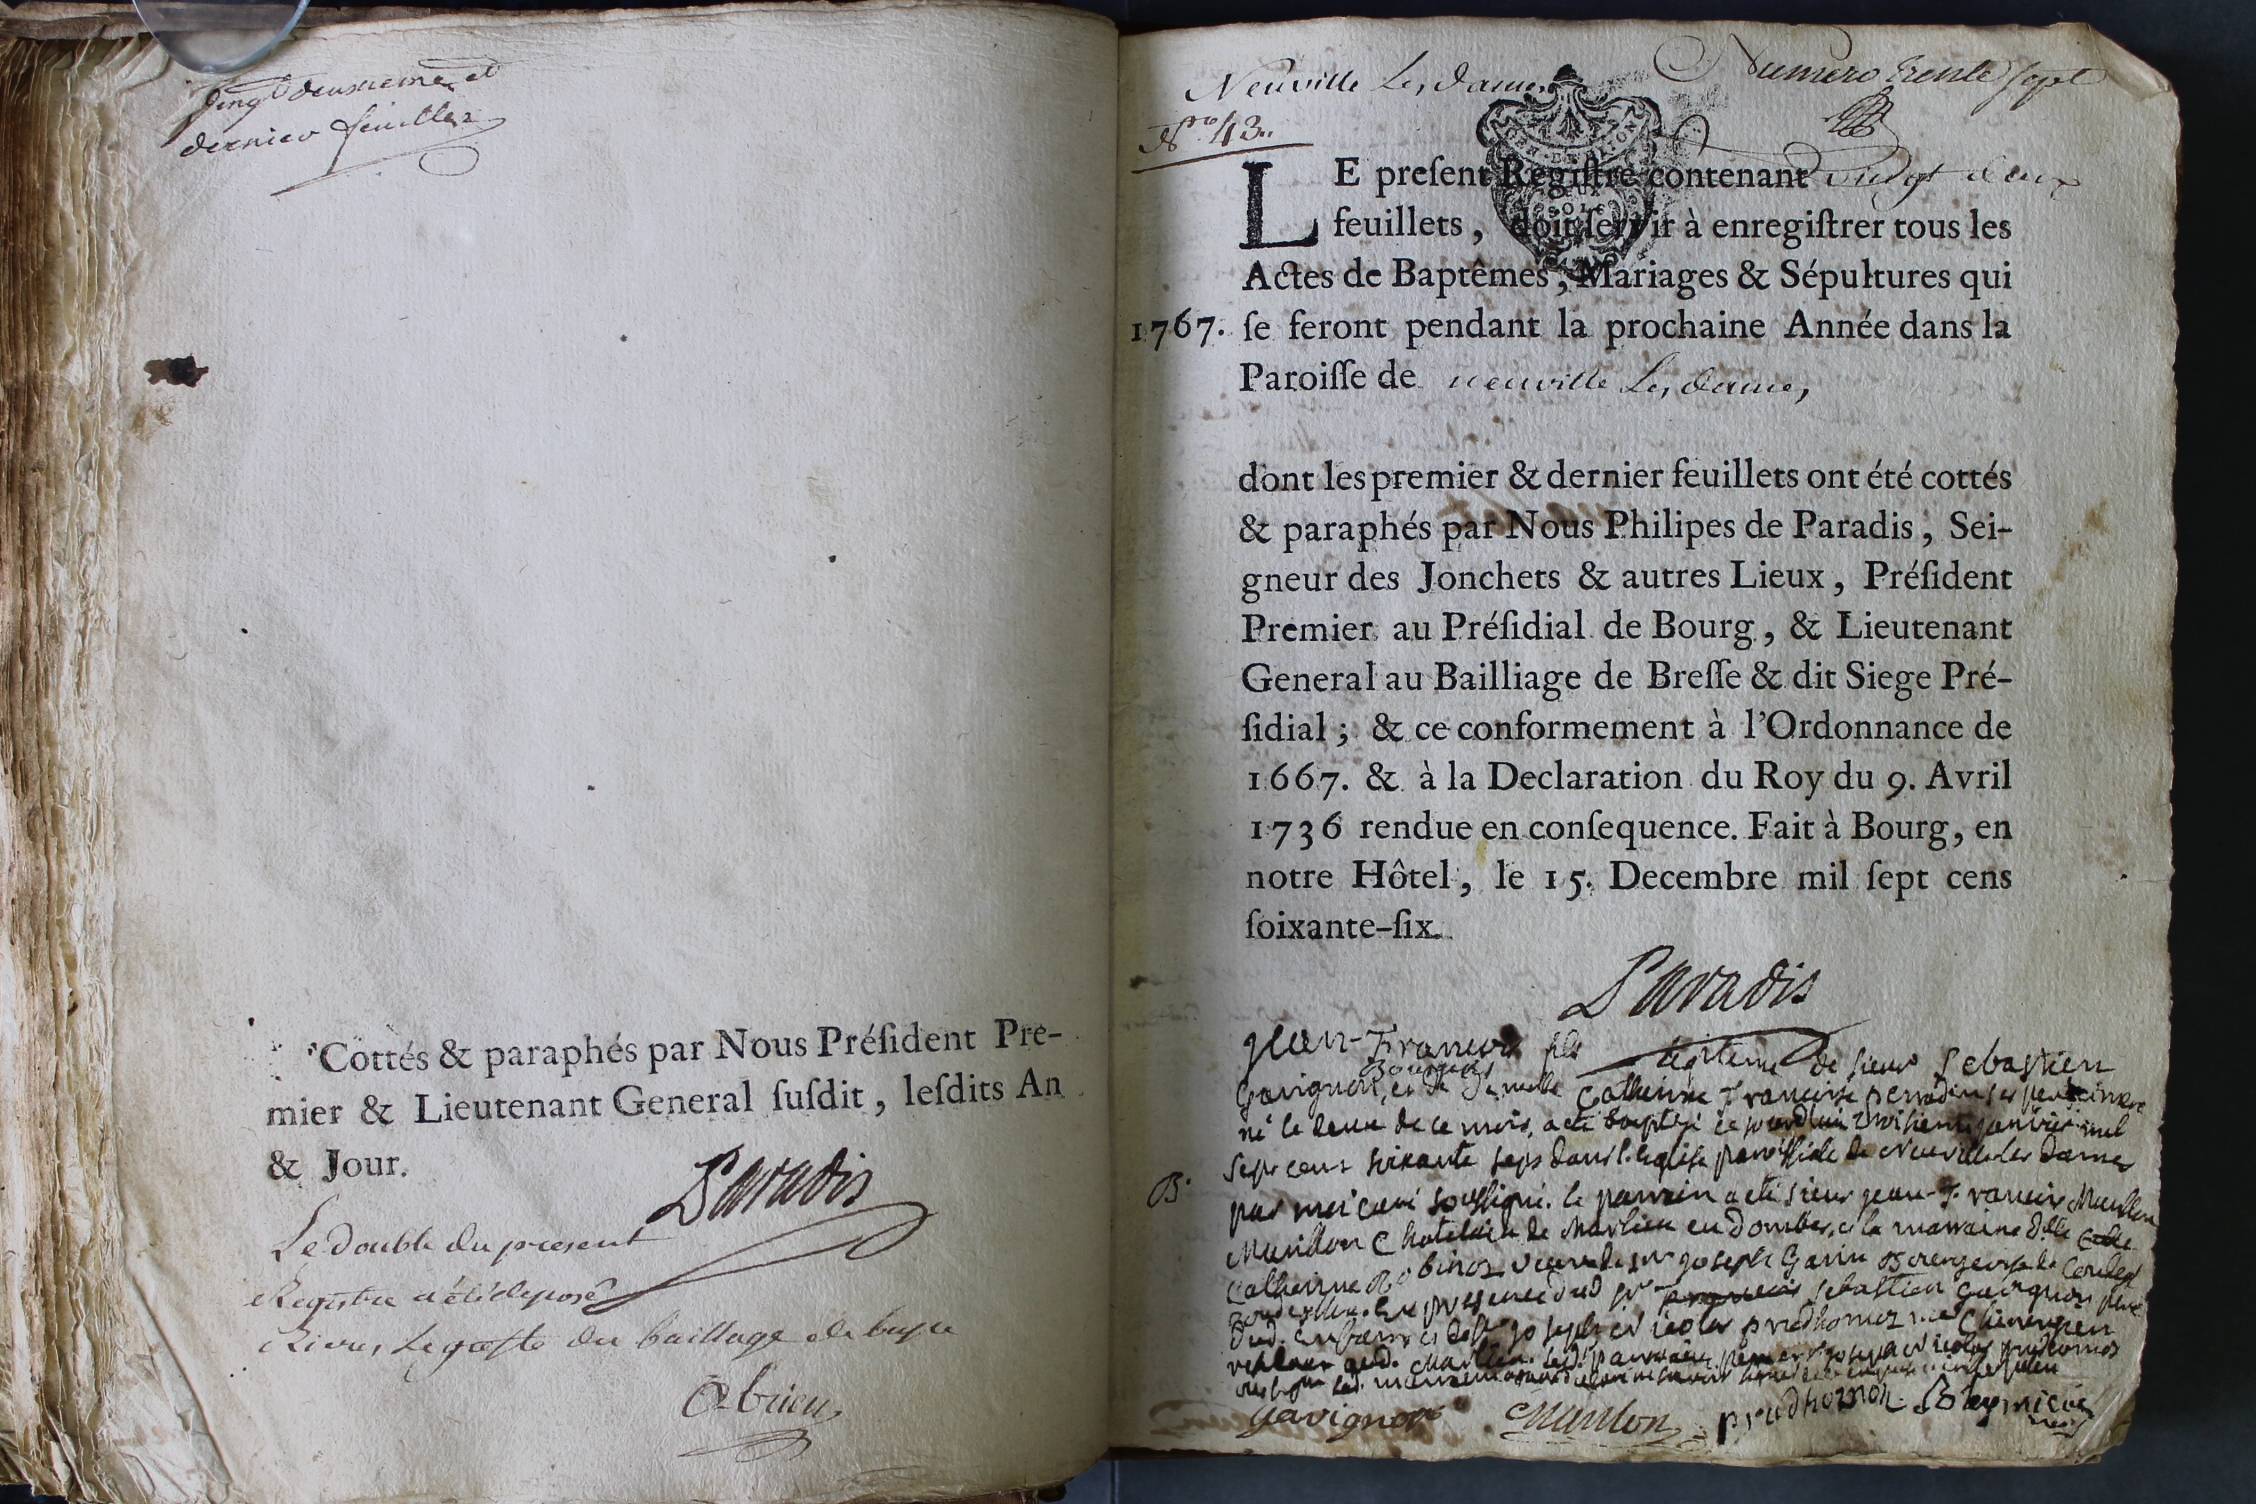 vingt deuxieme et
dernier feuillet
Cottés & paraphés par Nous Préſident Pre-
mier & Lieutenant General ſuſdit, leſdits An
& Jour.
Paradis
Le double du present
Registre a été déposé
au baillage de
Neuville Les dames
Numero trente sept
Nro 43.
LE preſent Regiſtre contenant vingt deux
feuillets, doit ſervir à enregiſtrer tous les
Actes de Baptêmes, Mariages & Sépultures qui
1767. ſe feront pendant la prochaine Année dans la
Paroiſſe de neuville Les dames
dont les premier & dernier feuillets ont été cottés
& paraphés par Nous Philipes de Paradis, Sei-
gneur des Jonchets & autres Lieux, Préſident
Premier au Préſidial de Bourg, & Lieutenant
General au Bailliage de Breſſe & dit Siege Pré-
ſidial; & ce conformement à l'Ordonnance de
1667. & à la Declaration du Roy du 9. Avril
1736 rendue en conſequence. Fait à Bourg, en
notre Hôtel, le 15. Decembre mil ſept cens
ſoixante-ſix.
Paradis
jean-François fils legitime de sieur Sebastien
Bourgeois
Gavignon, et de Catherine Françoise
né le deux de ce mois, a eté baptisé ce jourdhui troisieme janvier mil
sept cent soixante sept dans l'eglise paroissiale de Neuville les dames
B.
par moi curé soussigné. le parrain a eté sieur jean-François
Chatelain de Marlieu en Dombes, et la marraine
Catherine veuve de sr joseph Garin Bourgeoise de
en presence dud sr Sebastien Gavignon pere
gavignon prudhomon